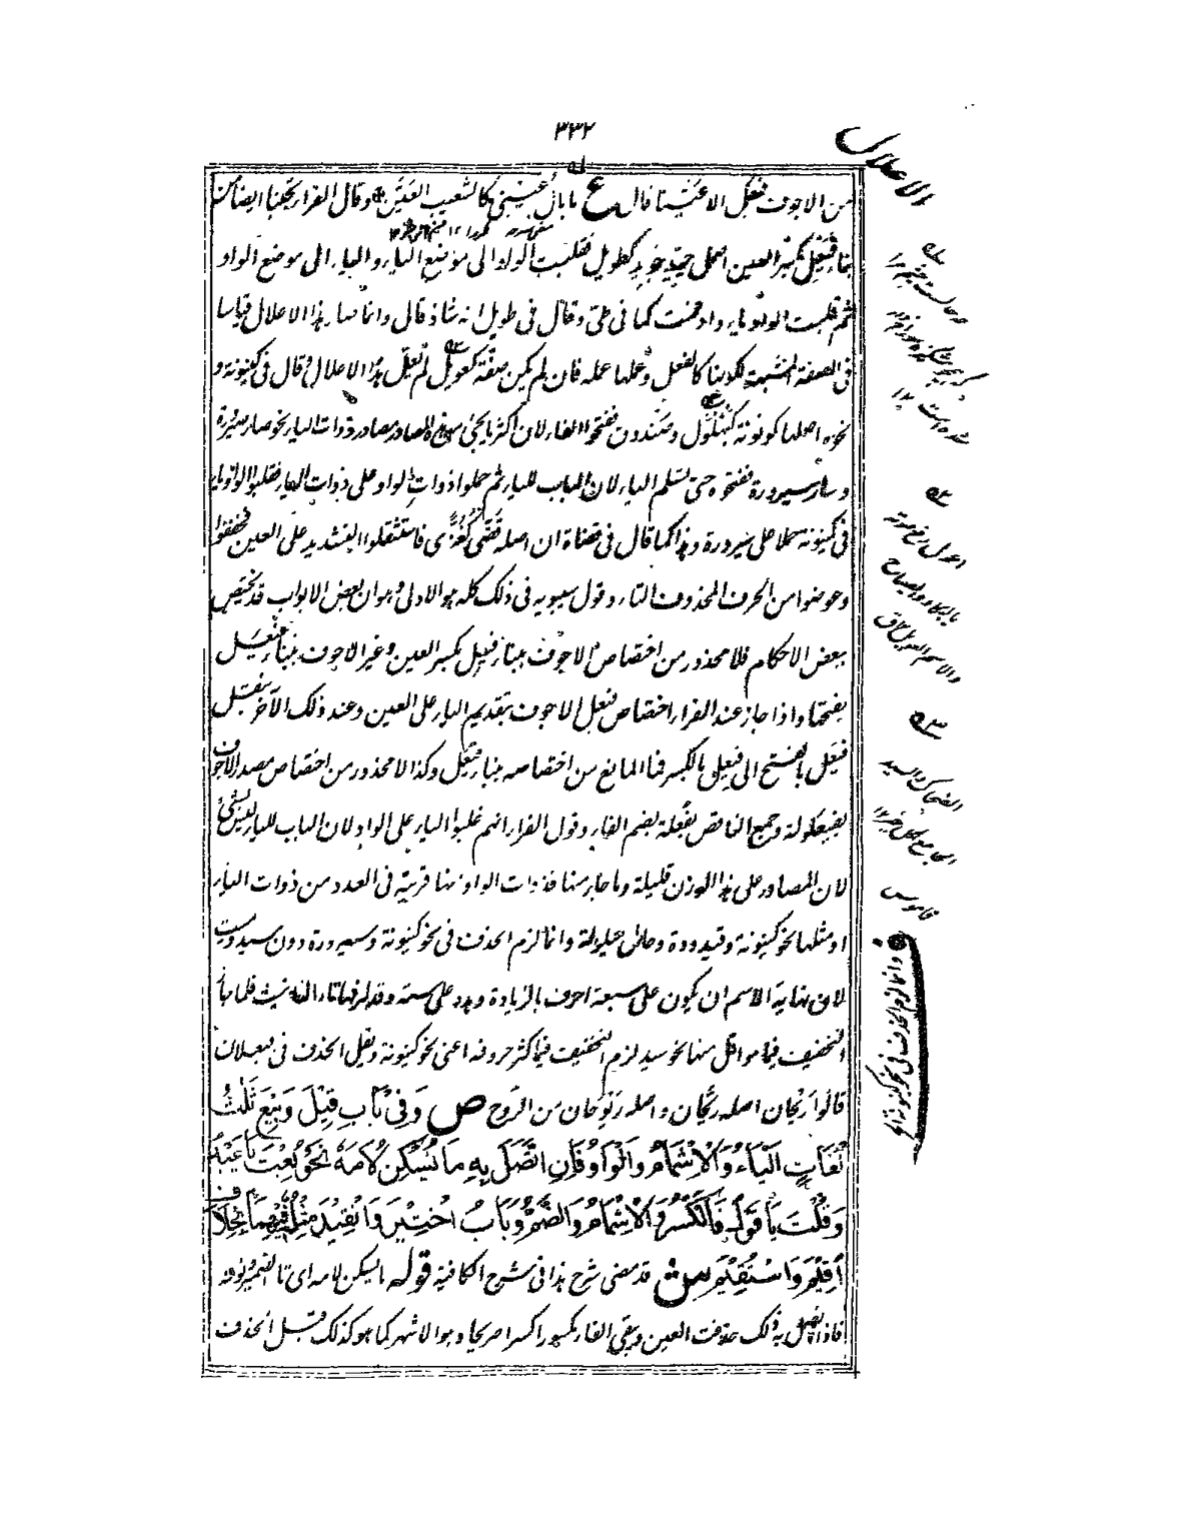 ٣٣٢
الاعلال
من الاجوف فيعل الا عيّنا قال ع ما بال عيني كالشعيب العيّن وقال الفراء تجنبا ايضا من
بناء فيعل بكسر العين اصل جيد جويد كطويل فقلبت الواو الى موضع الياء والياء الى موضع الواو
ثم قلبت الواو ياء وادغمت كما في طيّ وقال في طويل انه شاذ قال وانما صار هذا الاعلال قياسا
في الصفة المشبهة لكونها كالفعل وعملها عمله فان لم يكن صفة كعويل لم يعل هذا الاعلال وقال في كينونة و
نحوه اصلها كونونة كبهلول وصندوق ففتحوا الفاء لان اكثر ما يجئ من هذه المصادر مصادر ذوات الياء نحو صار صيرورة
وسار سيرورة ففتحوه حتى تسلم الياء لان الباب للياء ثم حملوا ذوات الواو على ذوات الياء فقلبوا الواو ياء
في كينونة حملا على صيرورة وهذا كما قال في قضاة ان اصله قضّى كغزّى فاستثقلوا التشديد على العين فخففوا
وعوضوا من الحرف المحذوف التاء وقول سيبويه في ذلك كله هو الاولى وهو ان بعض الابواب قد يختص
ببعض الاحكام فلا محذور من اختصاص الاجوف ببناء فيعل بكسر العين وغير الاجوف ببناء فيعل
بفتحها واذا جاز عند الفراء اختصاص فعيل الاجوف بتقديم الياء على العين وعند ذلك الآخر بنقل
فيعل بالفتح الى فيعل بالكسر فما المانع من اختصاصه ببناء فيعل وكذا لا محذور من اختصاص مصدر الاجوف
بفيعلولة وجمع الناقص بفعلة بضم الفاء وقول الفراء انهم غلبوا الياء على الواو لان الباب للياء ليس بشئ
لان المصادر على هذا الوزن قليلة وما جاء منها فذوات الواو منها قريبة في العدد من ذوات الياء
او مثلها نحو كينونة وقيدودة وحال حيلولة وانما لزم الحذف في نحو كينونة وسيرورة دون سيد وميت
لان نهاية الاسم ان يكون على سبعة احرف بالزيادة وهذه على ستة وقد لزمها تاء التانيث فلما جاء
التخفيف فيما هو اقل منها نحو سيد لزم التخفيف فيما كثر حروفه اعني نحو كينونة ونقل الحذف في فيعلان
قالوا ريحان اصله ريّحان واصله ريوحان من الروح ص وَفِي بَابِ قِيْلَ وَبِيْعَ ثَلٰثُ
لُغَاتٍ الْيَاءُ وَالْاِشْمَامُ وَالْوَاوُ فَاِنِ اتَّصَلَ بِهِ مَا يُسَكِّنُ لَامَهُ نَحْوُ بِعْتَ يَا عَبْدُ
وَقُلْتَ يَا قَوْلُ فَالْكَسْرُ وَالْاِشْمَامُ وَالضَّمُّ وَبَابُ اُخْتِيْرَ وَانْقِيْدَ مِثْلُهُ فِيْهِمَا بِخِلَافِ
اُقِيْمَ وَاسْتُقِيْمَ ش قد مضى شرح هذا في شرح الكافية قوله ما يسكن لامه اى تاء الضمير ونونه
فاذا اتصل به ذلك حذفت العين ويبقى الفاء مكسورا كسرا صريحا وهو الاشهر كما هو كذلك قبل الحذف
قاموس
وانما لزم الحذف في نحو كينونة الخ